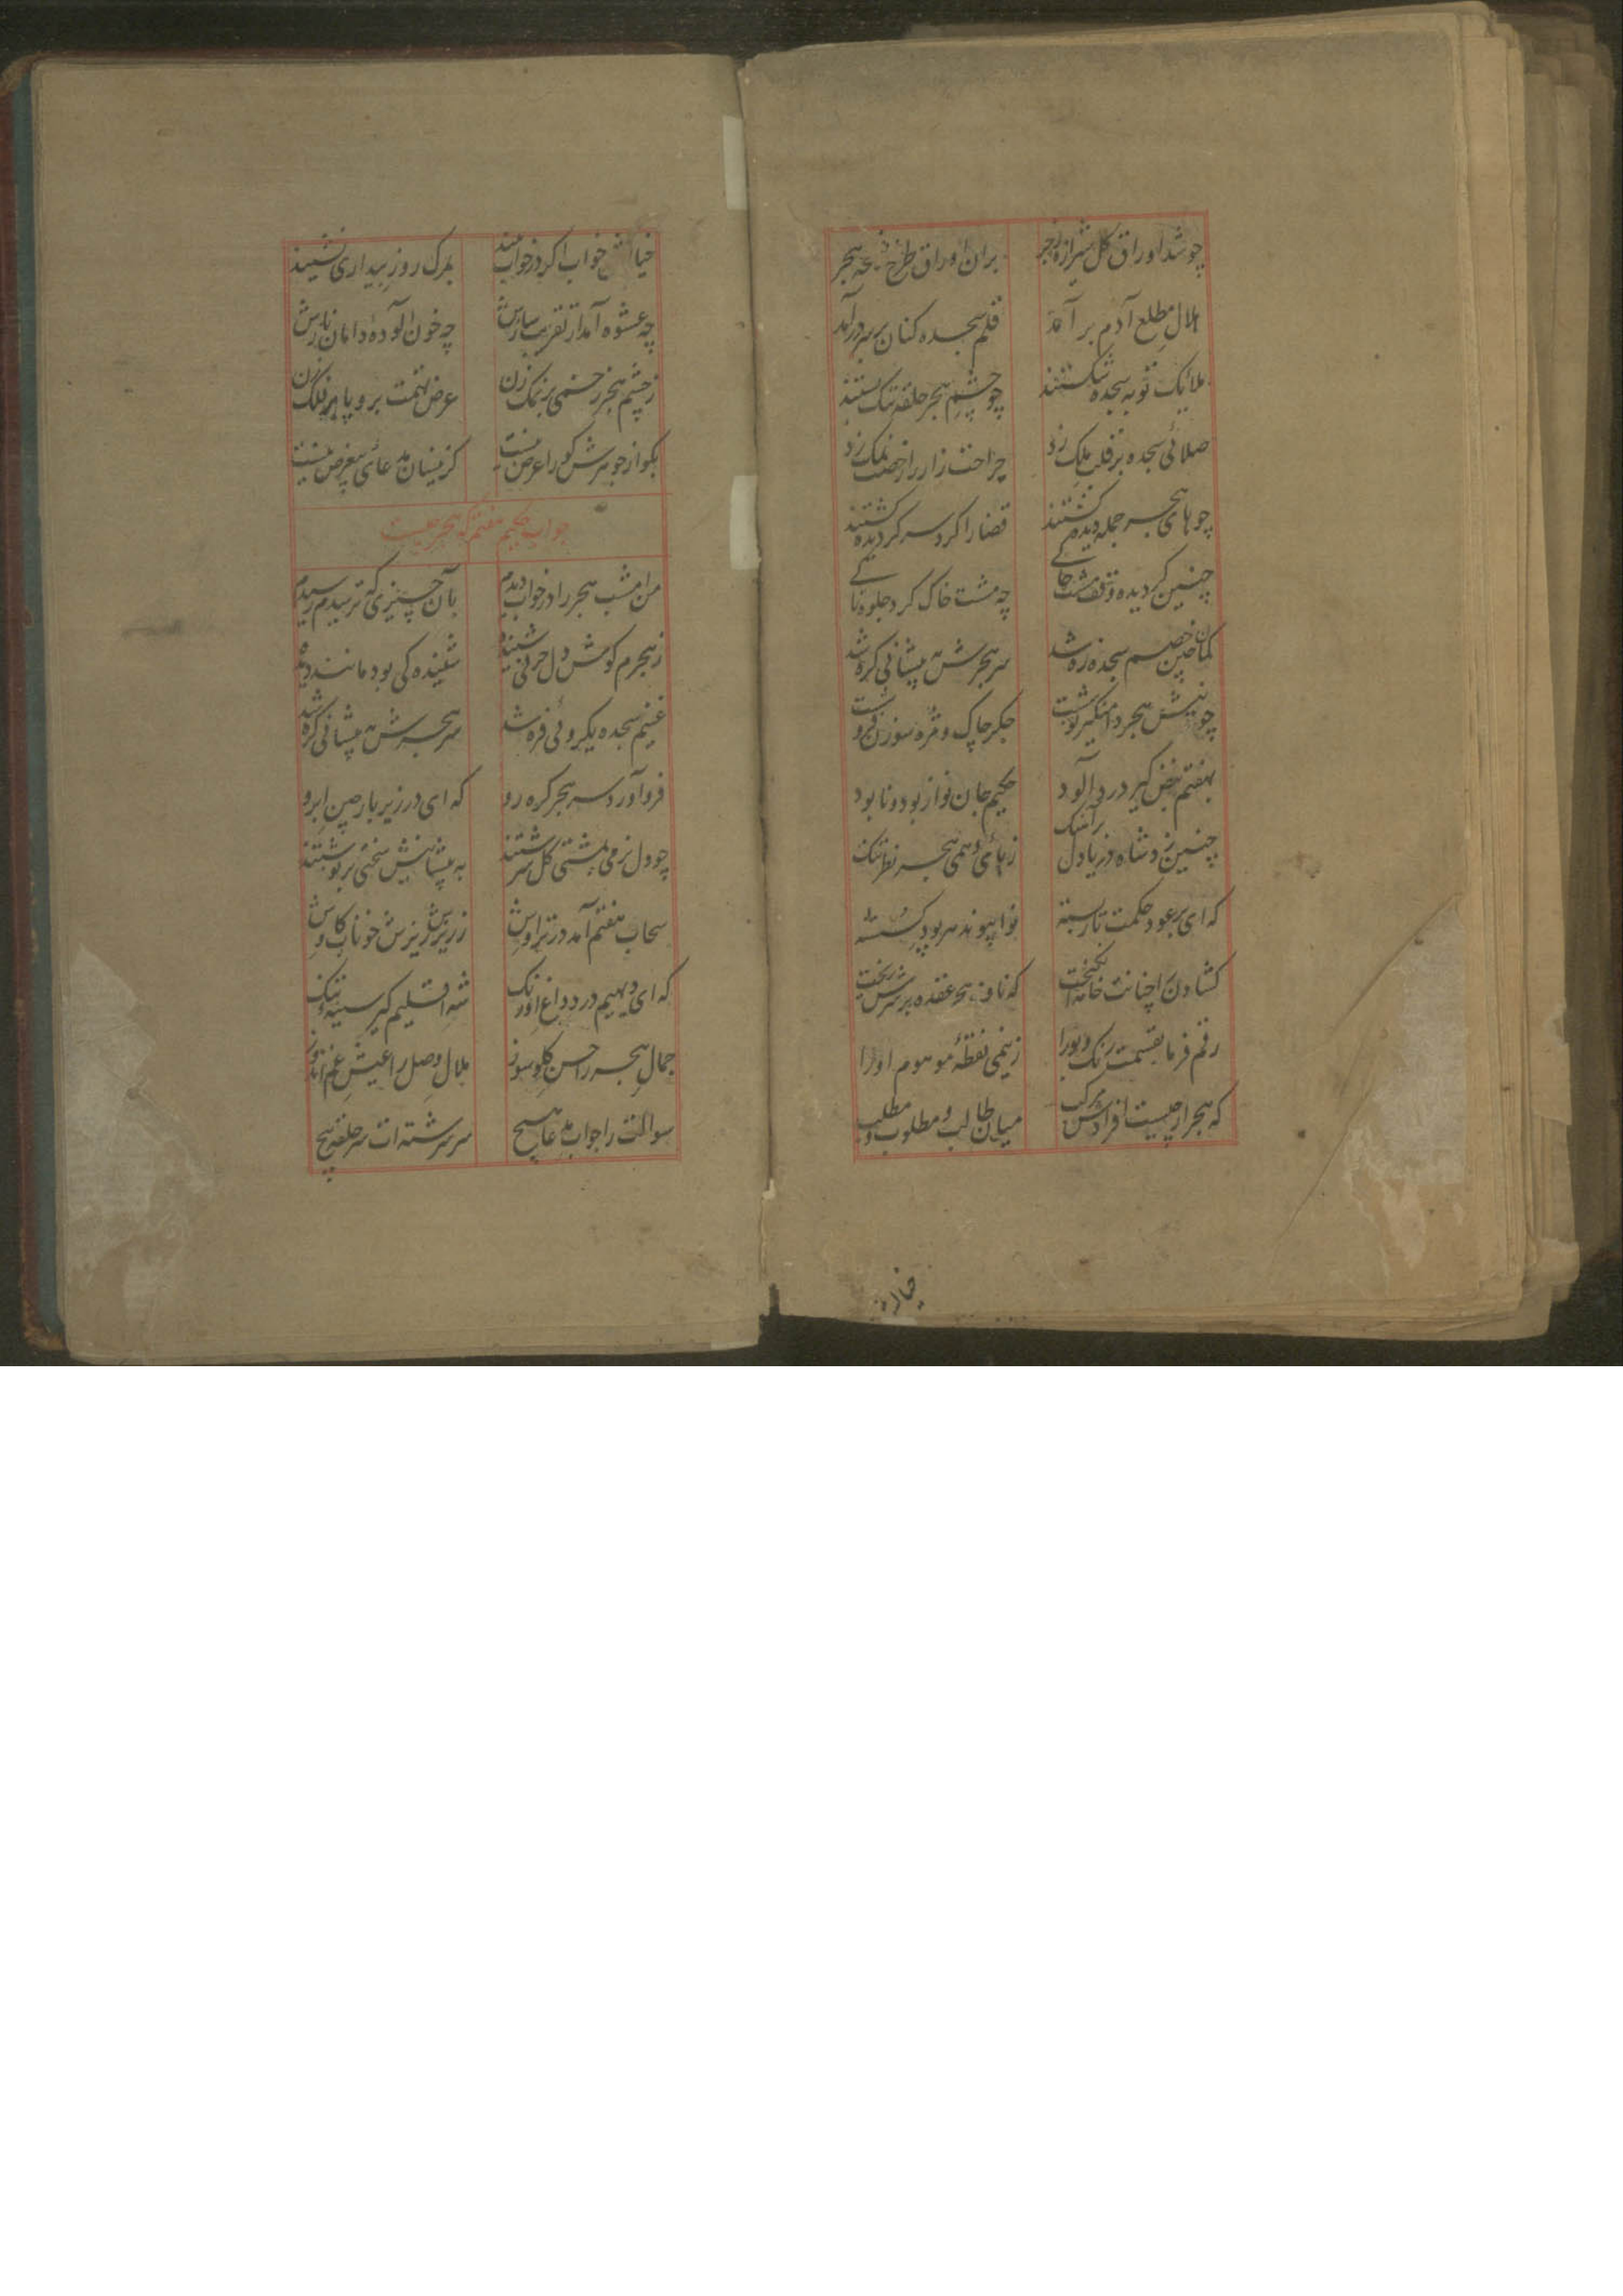 چو شد اوراق گل شیرازهٔ هجر
بران اوراق طرح هجر
هلال مطلع آدم بر آمد
قلم سجده کنان بر سر در آمد
ملائک توبه سجده شکستند
چو چشم هجر حلقه تنک بستند
صلائی سجده بر قلب ملک زد
جراحت زار را نمک زد
چو هاهی هجر سر جمله دیده گشتند
قضا را گرد سر گردیده گشتند
چنین گردیده وقف مشت خاکے
چه مشت خاک کرد جلوه
کمان چین خصم سجده زه شد
سر هجرش پیشانی گره شد
چو نیش هجر دامنگیر
جگر چاک و مژه سوزن
بهفتم نبض گیر درد آلود
حکیم جان نواز بود و نابود
چنین زد شاه دریا دل
زهای هجر نظر تنک
که ای بر عود حکمت تار بسته
نوا پیوند هر بود گسسته
کشادن
که ناف هجر عقده بر سرش ریخت
رقم فرما بقسمت رنگ و بو را
ز نیمی نقطهٔ موهوم او را
که هجر از چیست افراد مرکب
میان طالب و مطلوب و مطلب
خواب اگر در خواب بیند
بمرک روز بیداری نشیند
چه عشوه آمد از تقریب سازش
چه خون آلوده دامان نازش
ز چشم هجر زخمی بر نمک زن
عرض تهمت برو پا بر فلک زن
بگو از جوهرش کو را عرض نیست
کزینسان مدعائ بیغرض نیست
جواب حکیم هفتم که هجر چیست
من امشب هجر را در خواب دیدم
بآن چیزی که ترسیدم رسیدم
ز هجرم گوش دل حرفی شنیده
شنیده کی بود مانند دیده
غنیم سجده یکروئی فره شد
سر هجرش پیشانی گره شد
فرو آورد سر هجر گره رو
که ای در زیر بار چین ابرو
چو دل نرمی بمشتی گل سرشتند
به پیشانیش سختی بر نوشتند
سحاب هفتم آمد در تراوش
ز ریزش ریزش خوناب کاوش
که ای دیهیم درد و داغ اورنگ
شه اقلیم گیر سینهٔ تنگ
جمال هجر را حسن گلوسوز
ملال وصل را عیش غم اندوز
سوالت را جواب مدعا هیچ
سر رشته ات سر حلقهٔ پیچ